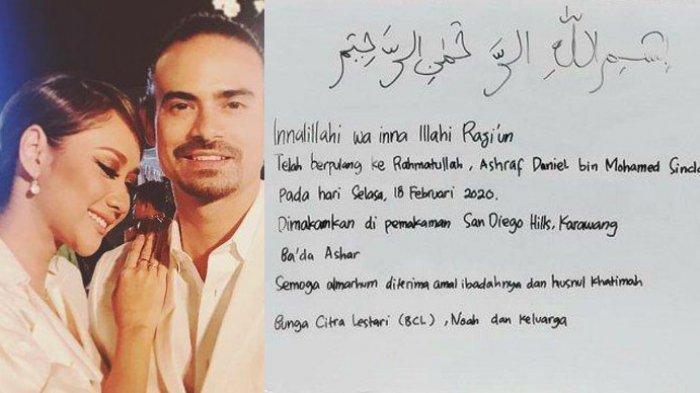 بسم الله الرحمن الرحيم
Innalillahi wa inna Illahi Raji'un
Telah berpulang ke Rahmatullah, Ashraf Daniel bin Mohamed Sincla
Pada hari Selasa, 18 Februari 2020.
Dimakamkan di pemakaman San Diego Hills, Karawang
Ba'da Ashar
Semoga almarhum diterima amal ibadahnya dan husnul khatimah
Bunga Citra Lestari (BCL), Noah dan keluarga